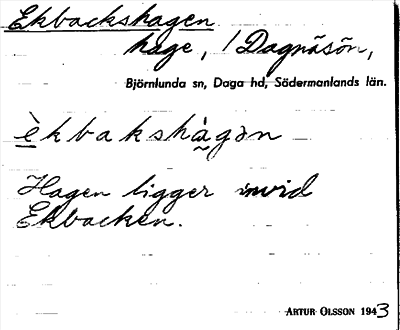 Ekbackshagen
hage, / Dagnäsön,
Björnlunda sn, Daga hd, Södermanlands län.
èkbakshàgən
Hagen ligger invid
Ekbacken.
ARTUR OLSSON 1943